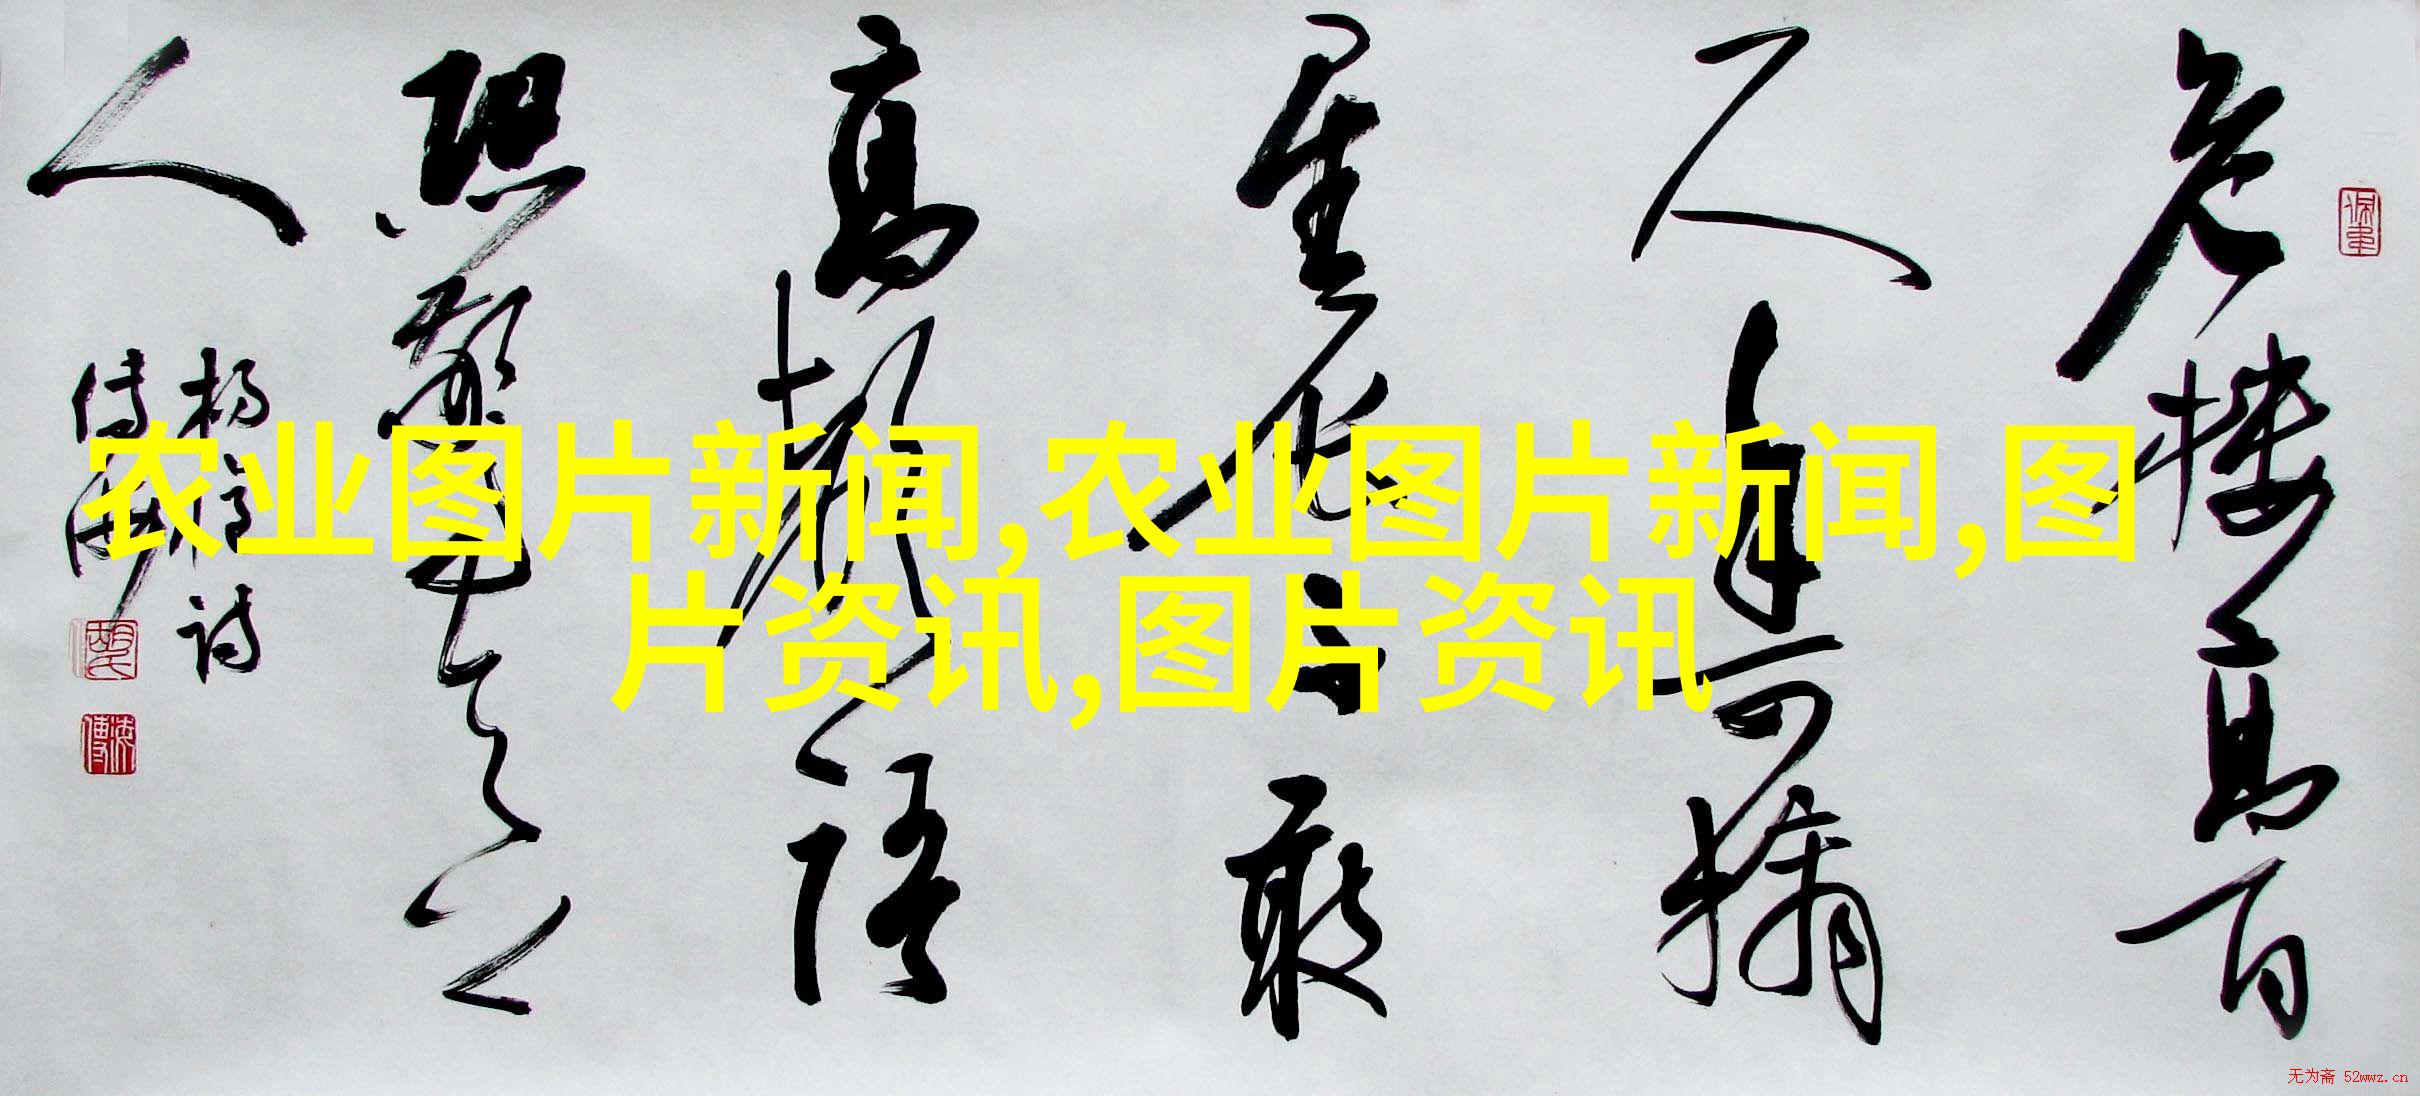 危楼高百
尺手可摘
星辰不敢
高聲語
恐驚天上
人
杨億诗
傳海
農业图片新闻,农业图片新闻,图
片资讯,图片资讯
无为斋 52wwz.cn